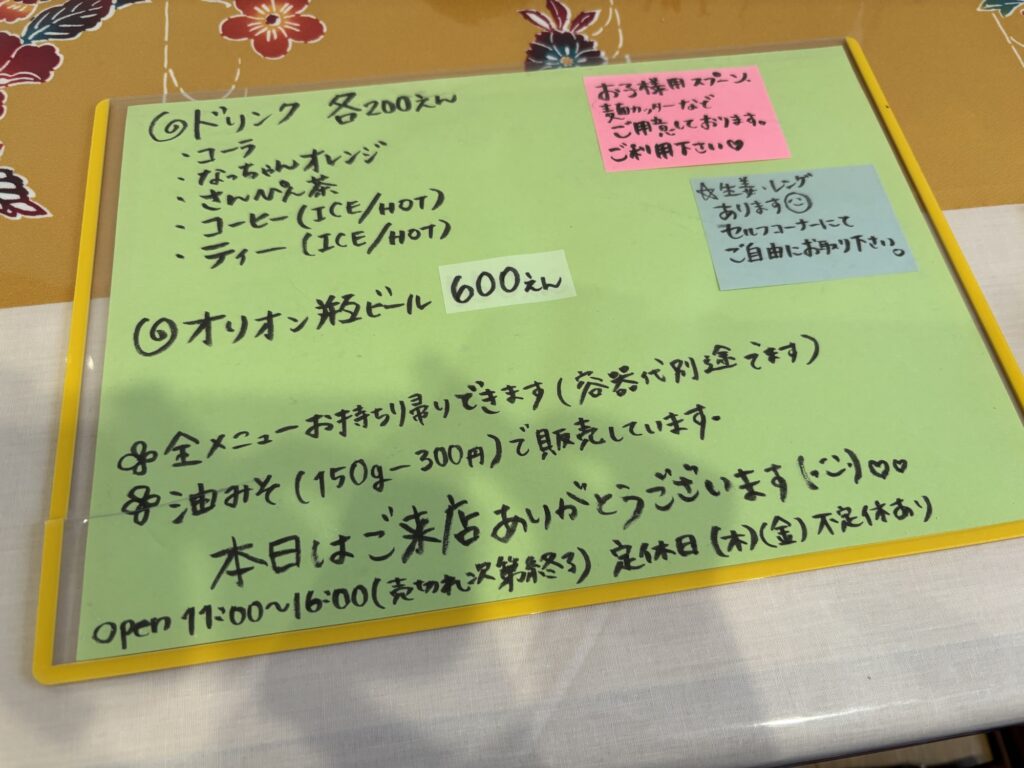 ◎ドリンク 各200えん
・コーラ
・なっちゃんオレンジ
・さんぴん茶
・コーヒー(ICE/HOT)
・ティー(ICE/HOT)
◎オリオン瓶ビール 600えん
お子様用スプーン、
麺カッターなど
ご用意しております。
ご利用下さい♡
☆生姜・レンゲ
あります☺
セルフコーナーにて
ご自由にお取り下さい。
全メニューお持ち帰りできます(容器代別途でます)
油みそ(150g-300円)で販売しています。
本日はご来店ありがとうございます(¨)♡♡
open 11:00~16:00(売切れ次第終了) 定休日(木)(金)不定休あり